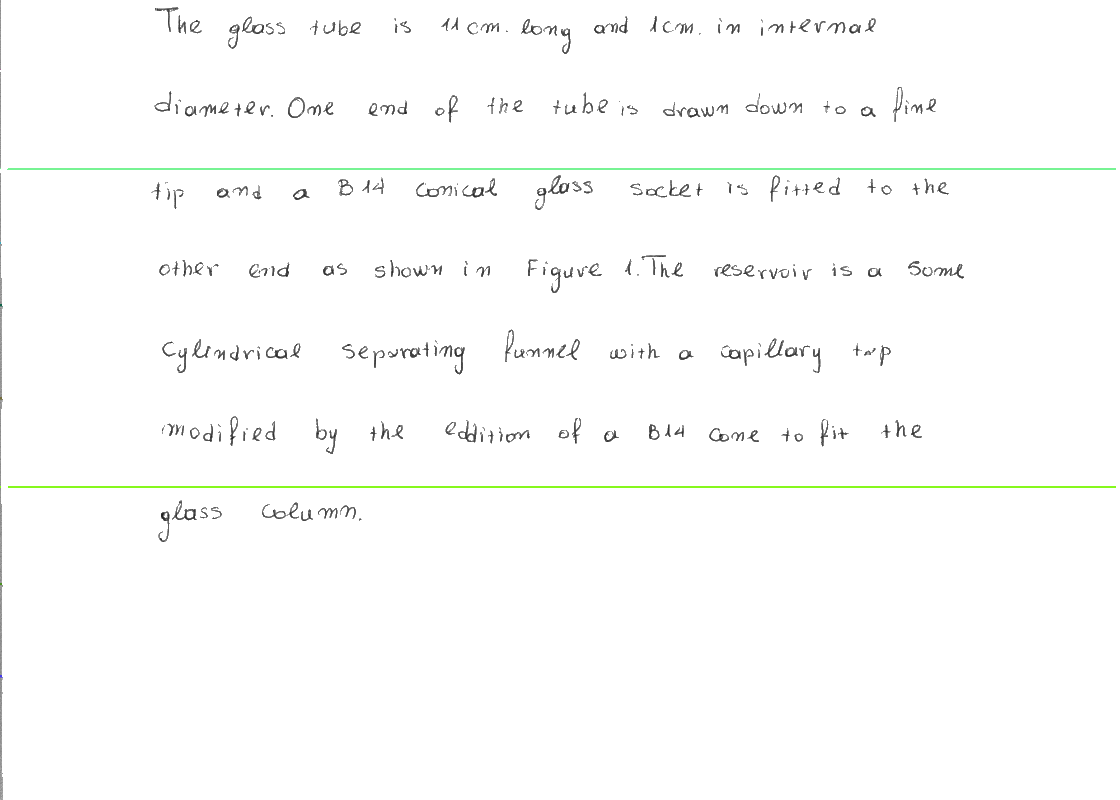 The glass tube is 11 cm. long and 1 cm. in internal
diameter. One end of the tube is drawn down to a fine
tip and a B14 conical glass socket is fitted to the
other end as shown in Figure 1. The reservoir is a some
cylindrical separating funnel with a capillary tap
modified by the eddition of a B14 cone to fit the
glass column.